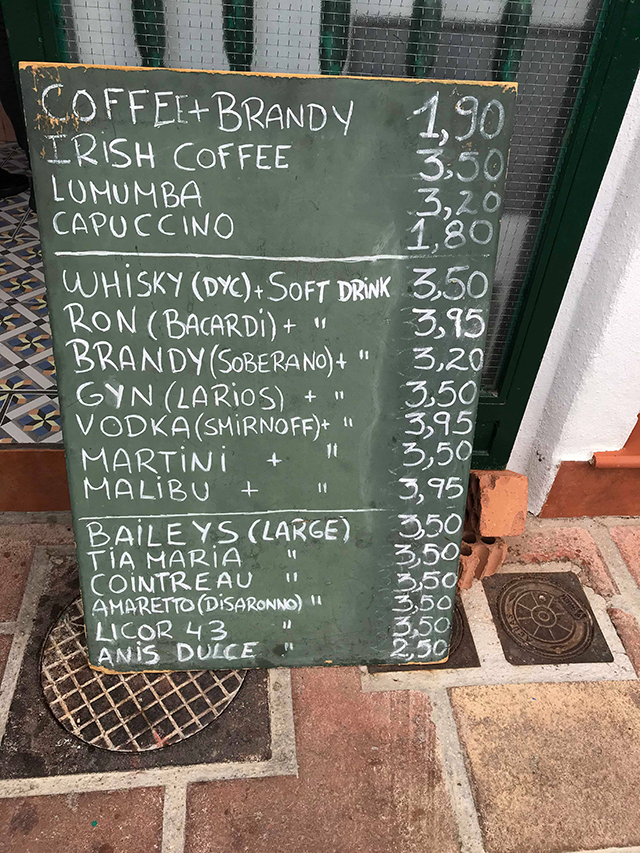 COFFEE+BRANDY 1,90
IRISH COFFEE 3,50
LUMUMBA 3,20
CAPUCCINO 1,80
WHISKY (DYC)+SOFT DRINK 3,50
RON (BACARDI) + " 3,95
BRANDY (SOBERANO)+ " 3,20
GYN (LARIOS) + " 3,50
VODKA (SMIRNOFF)+ " 3,95
MARTINI + " 3,50
MALIBU + " 3,95
BAILEYS (LARGE) 3,50
TIA MARIA " 3,50
COINTREAU " 3,50
AMARETTO (DISARONNO) " 3,50
LICOR 43 " 3,50
ANIS DULCE " 2,50